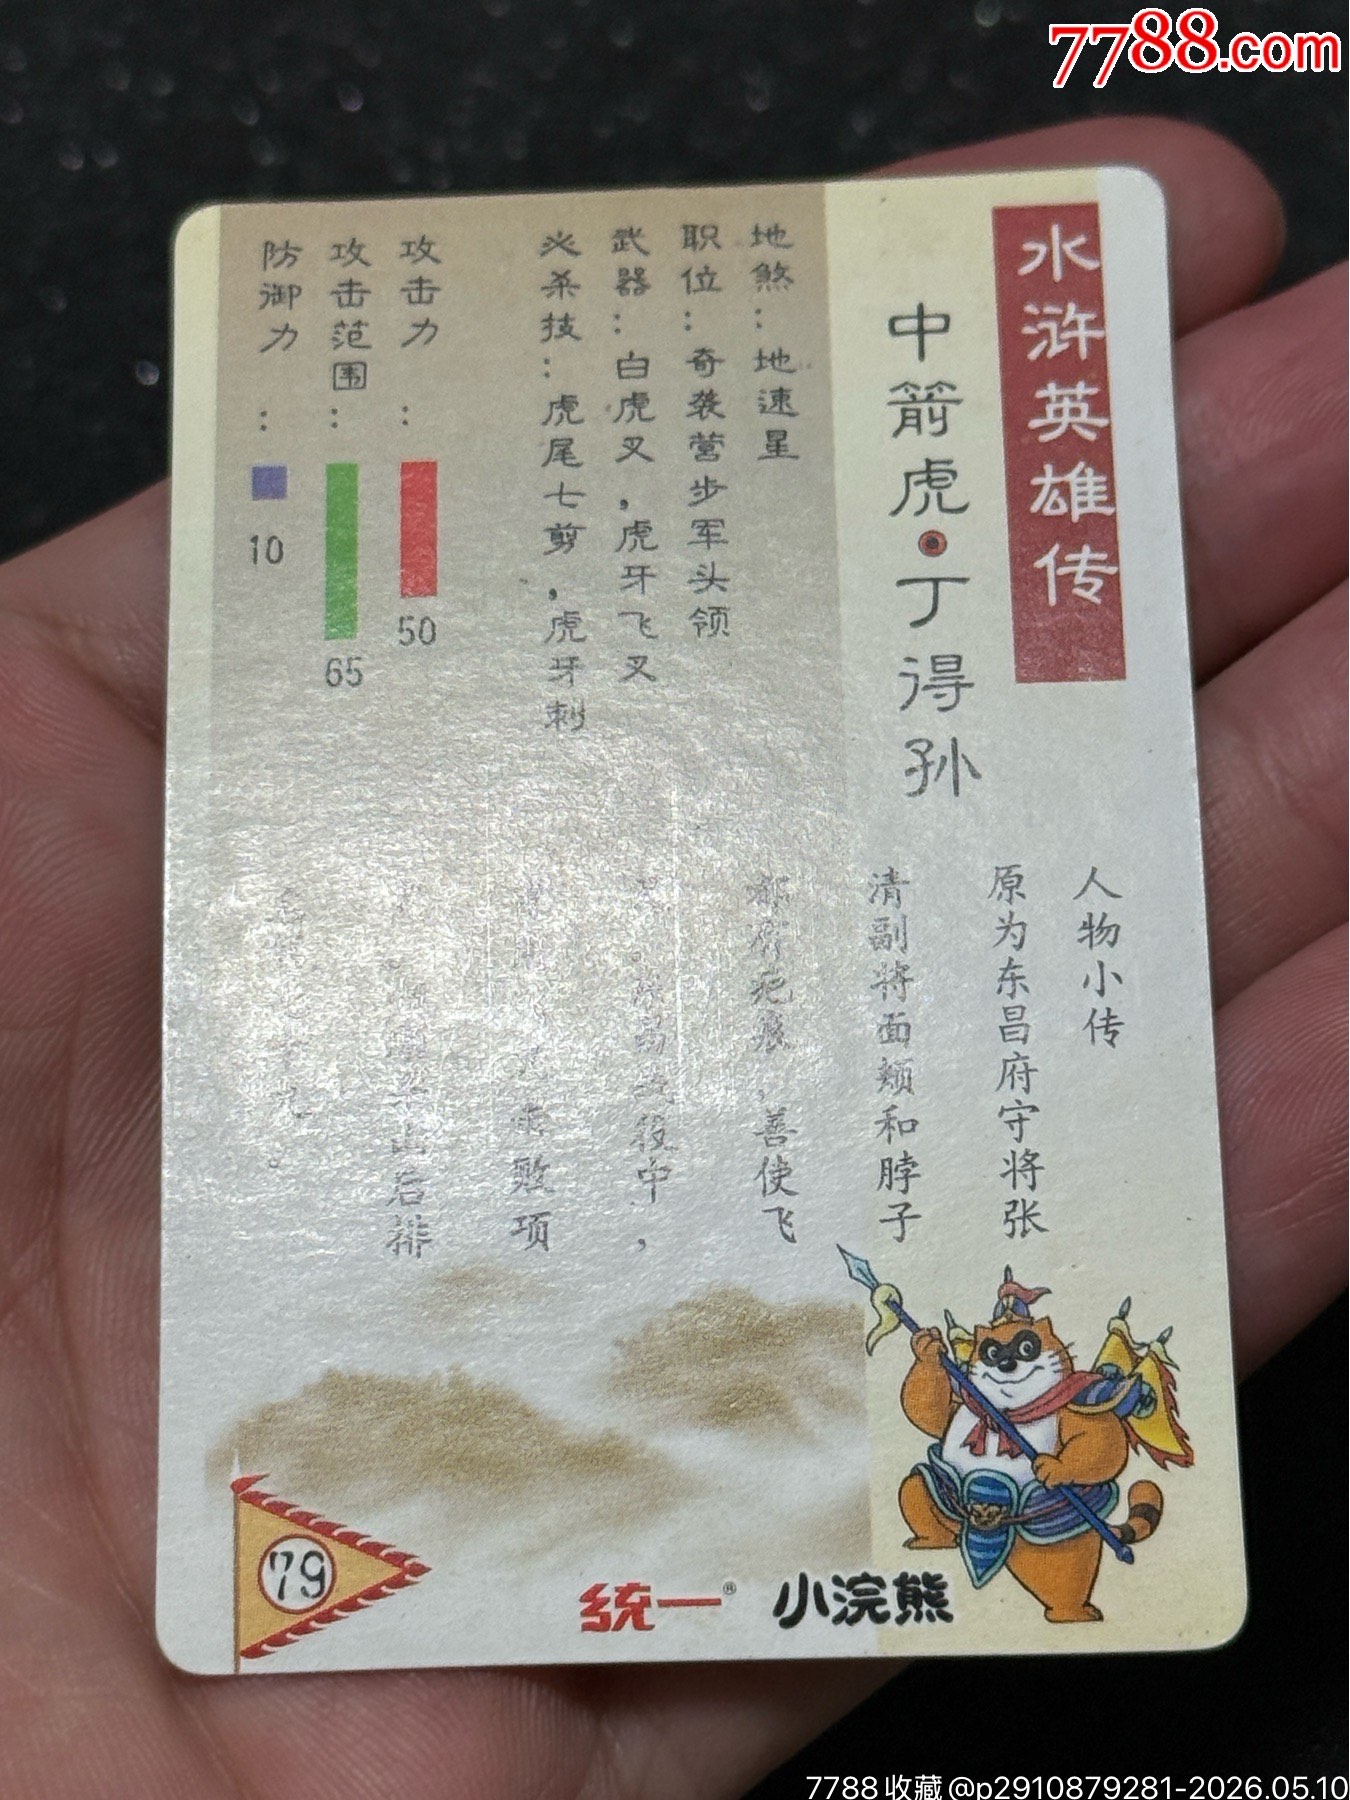 7788.com
水浒英雄传
中箭虎·丁得孙
地煞：地速星
职位：奇袭营步军头领
武器：白虎叉，虎牙飞叉
必杀技：虎尾七剪，虎牙刺
攻击力：50
攻击范围：65
防御力：10
人物小传
原为东昌府守将张
清副将面颊和脖子
都有疤痕，善使飞
战役中，
败项
山后排
79
统一® 小浣熊
7788收藏@p2910879281-2026.05.10